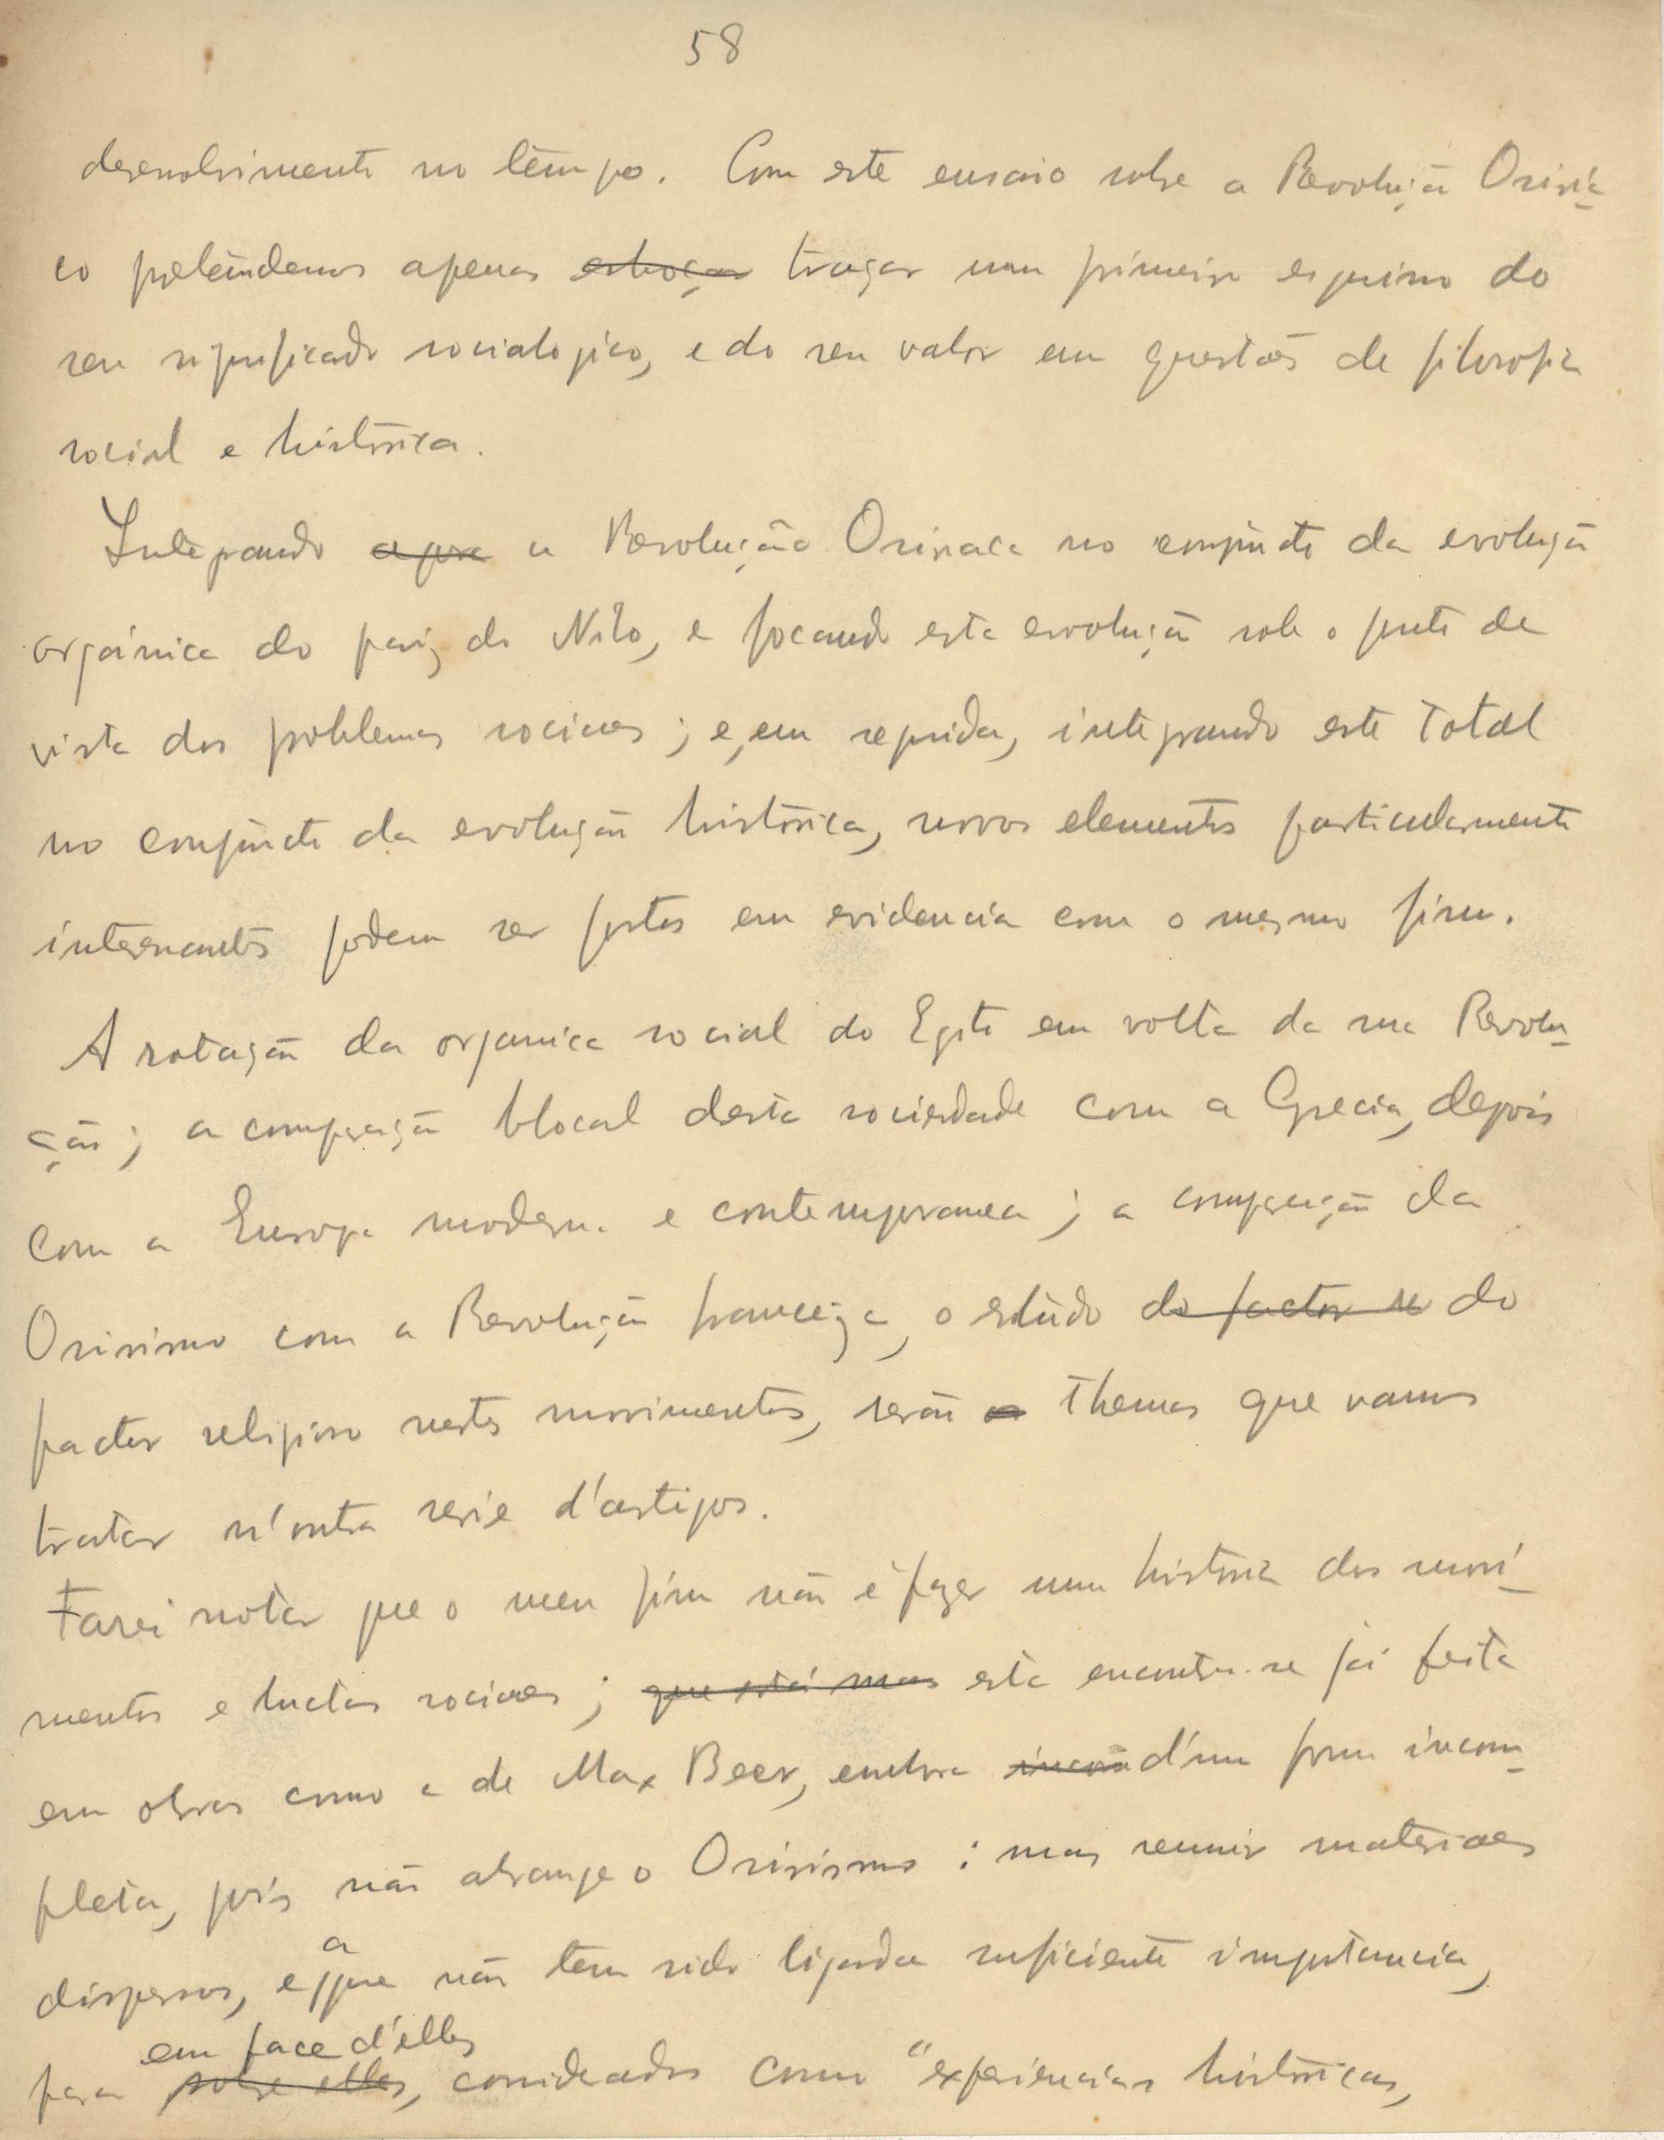 58
desenvolvimento no tempo. Com este ensaio sobre a Revolução Osiría-
co pretendemos apenas esboçar traçar um primeiro esquisso do
seu significado sociologico, e do seu valor em questões de filosofia
social e histórica.
Integrando agora a Revolução Osiriaca no conjuncto da evolução
orgánica do paiz do Nilo, e focando esta evolução sob o ponto de
vista dos problemas sociaes; e, em seguida, integrando este total
no conjuncto da evolução histórica, novos elementos particularmente
interessantes podem ser postos em evidencia com o mesmo fim.
A rotação da organica social do Egito em volta da sua Revolu-
ção; a comparação blocal desta sociedade com a Grecia, depois
com a Europa moderna e contemporanea; a comparação da
Osirismo com a Revolução franceza, o estudo do factor re do
factor religioso nestes movimentos, serão themas que vamos
tratar n'outra serie d'artigos.
Farei notar que o meu fim não é fazer uma historia dos movi-
mentos e luctas sociaes; que está mas esta encontra-se já feita
em obras como a de Max Beer, embora d'uma forma incom-
pleta, pois não abrange o Osirismo: mas reunir materiaes
dispersos, e a que não tem sido ligada suficiente importancia,
para sobre elles em face d'elles, considerados como "experiencias históricas,